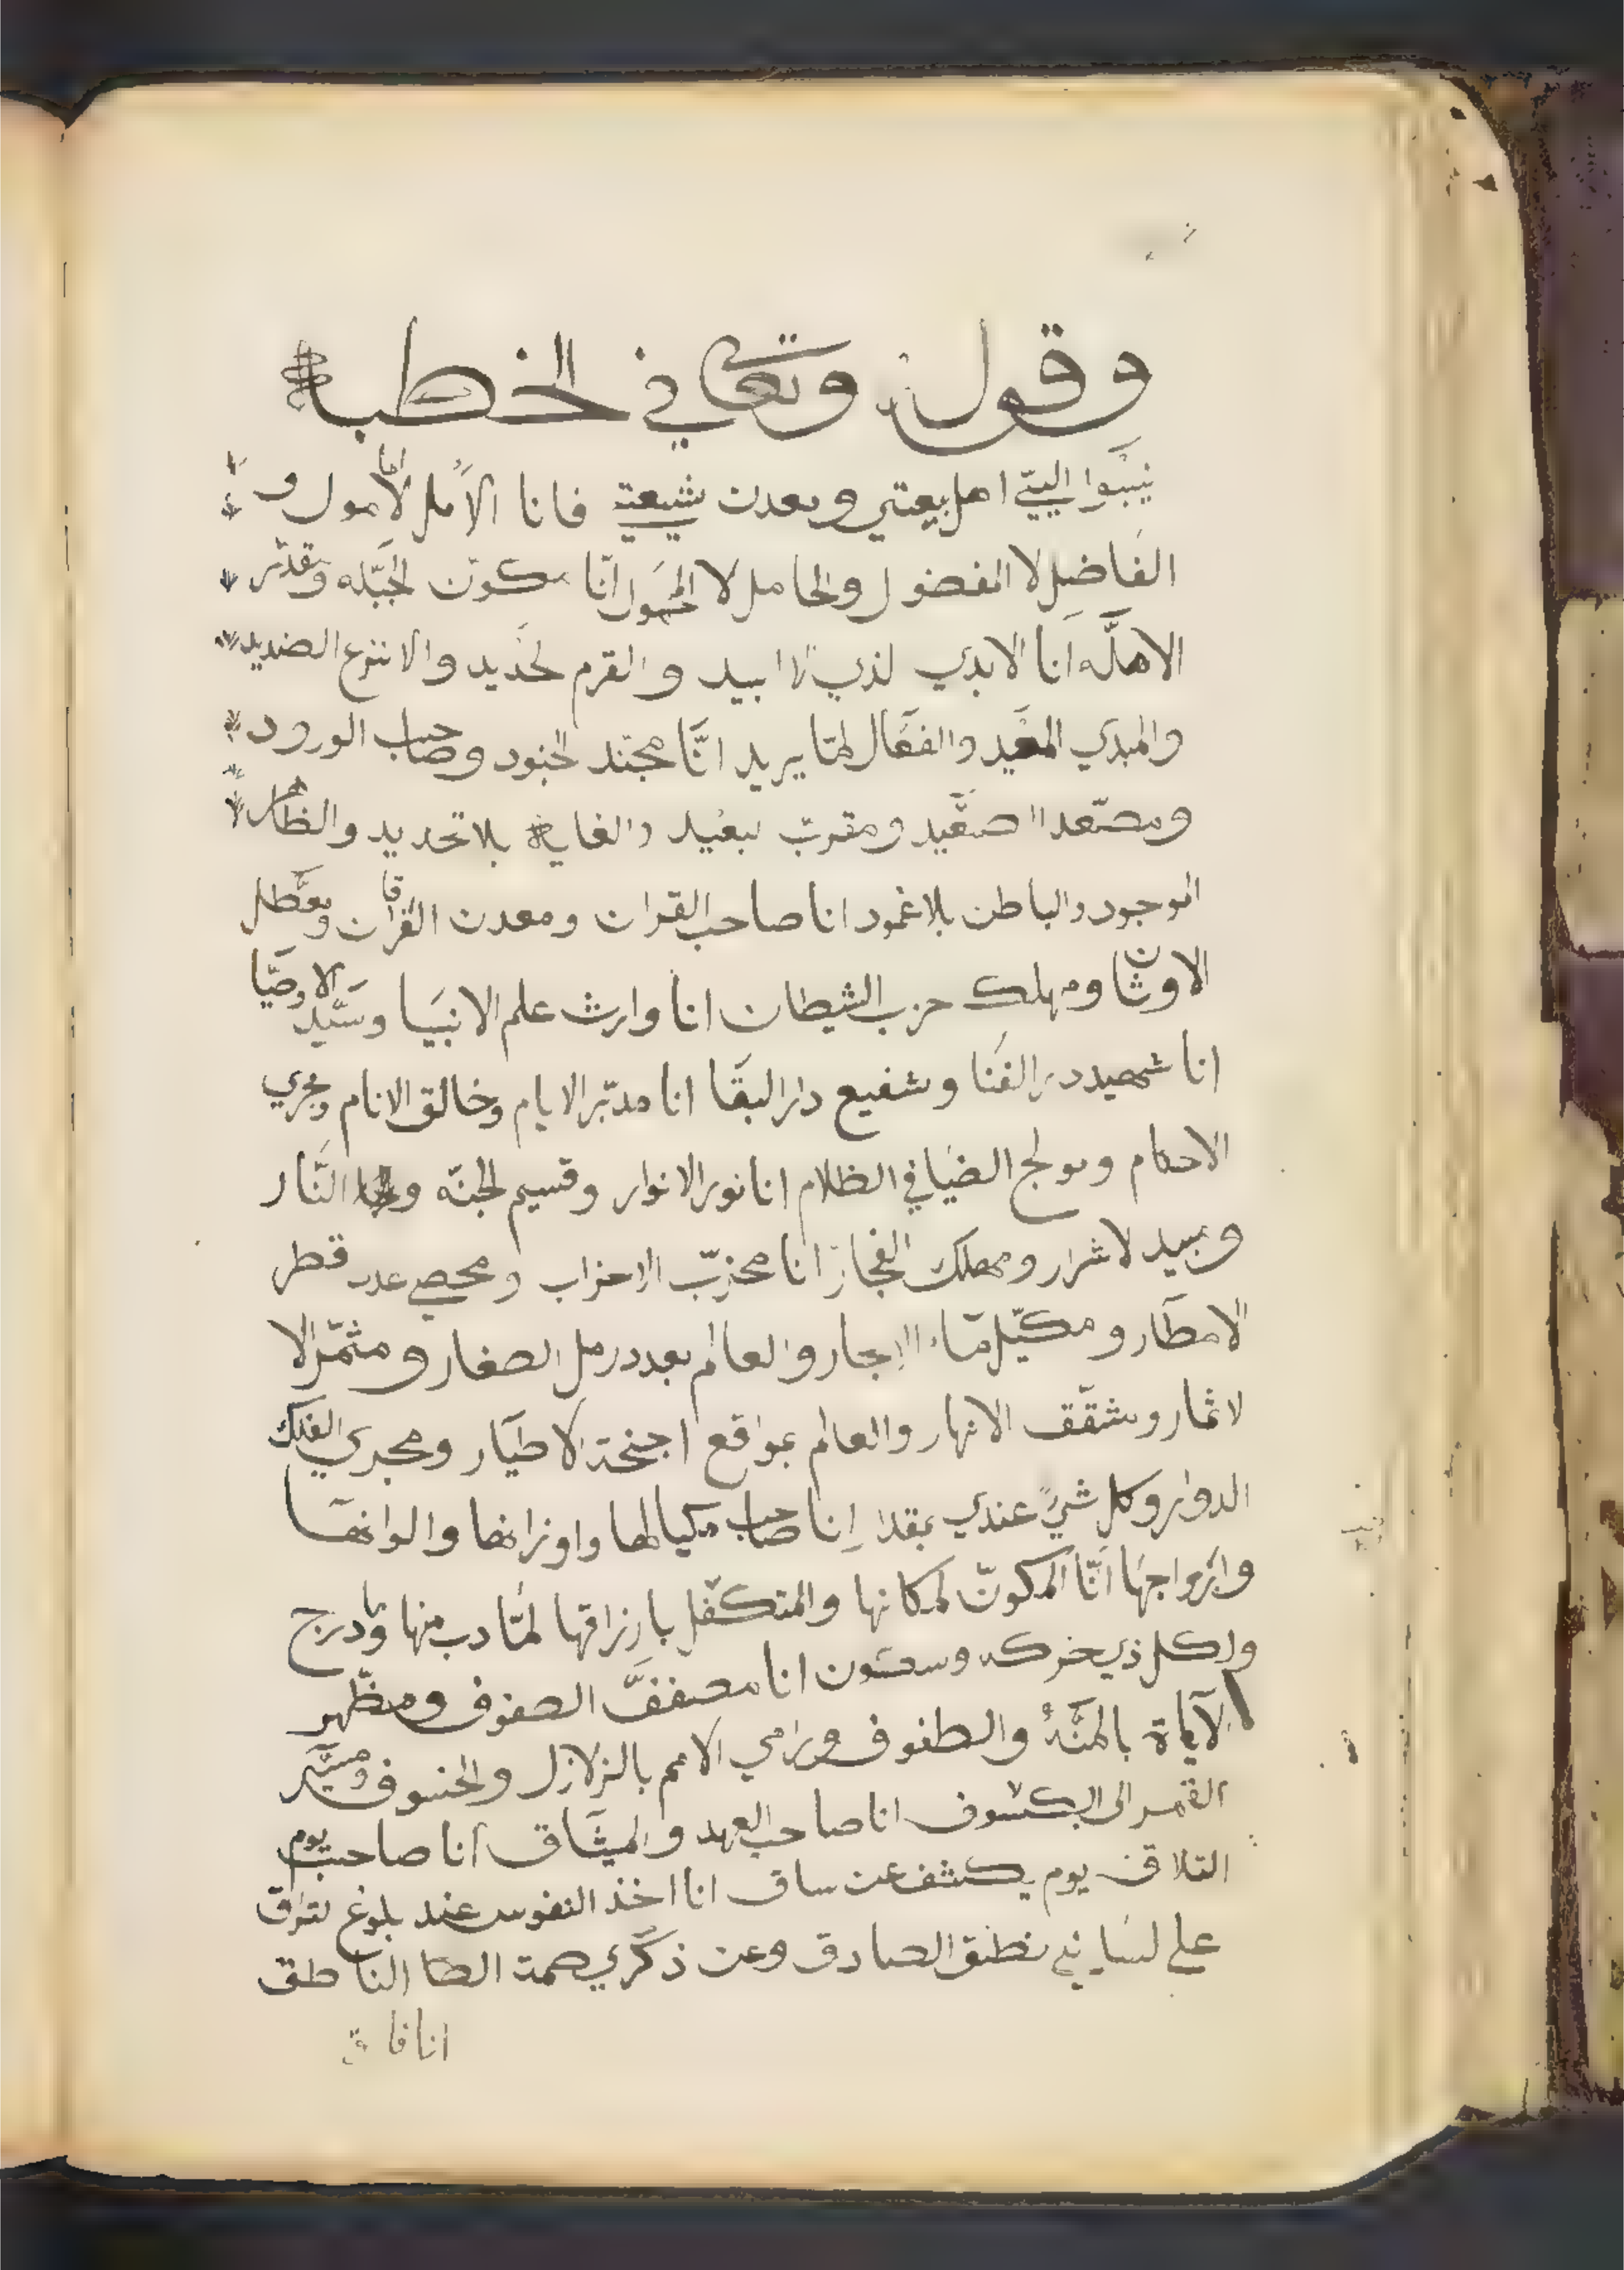 وقول وتعا في الخطبة
اهل بيعتي ومعدن شيعتي فانا الآمل لا المامول و
الفاضل لا المفضول والحامل لا المحمول انا مكون الجبله ومقدر
الاهله انا الابدي لذي لا ابيد والقرم لحديد والانزع الصنديد
والمبدي المعيد والفعال لما يريد انا مجند الجنود وصاحب الورود
ومصعد الصعيد ومقرب لبعيد والغاية بلا تحديد والظاهر
الموجود والباطن بلا غمود انا صاحب القران ومعدن الفرقان ومعطل
الاوثان ومهلك حزب الشيطان انا وارث علم الانبيا وسيد الاوصيا
انا شهيد دار الفنا وشفيع دار البقا انا مدبر الايام وخالق الانام ومجري
الاحكام ومولج الضيا في الظلام انا نور الانوار وقسيم لجنه النار
ومبيد لاشرار ومهلك الفجار انا محزب الاحزاب ومحصي عدد قطر
الامطار ومكيل ماء البحار والعالم بعدد رمل الصغار ومثمر الا
لاثمار ومشقق الانهار والعالم بمواقع اجنحة الاطيار ومجري الفلك
الدوار وكل شيً عندي بمقدا انا صاحب مكيالها واوزانها والوانها
وازواجها انا المكون لمكانها والمتكفل بارزاقها لما دب منها وما درج
ولكل ذي حركه وسكون انا مصفف الصفوف ومظهر
الآياة بالمنة والطفوف ورامي الامم بالزلازل والخسوف ومسير
القمر الى الكسوف انا صاحب العهد والميثاق انا صاحب يوم
التلاق يوم يكشف عن ساق انا اخذ النفوس عند بلوغ لتراق
على لساني نطق الصادق وعن ذكري صمة الناطق
انا فا